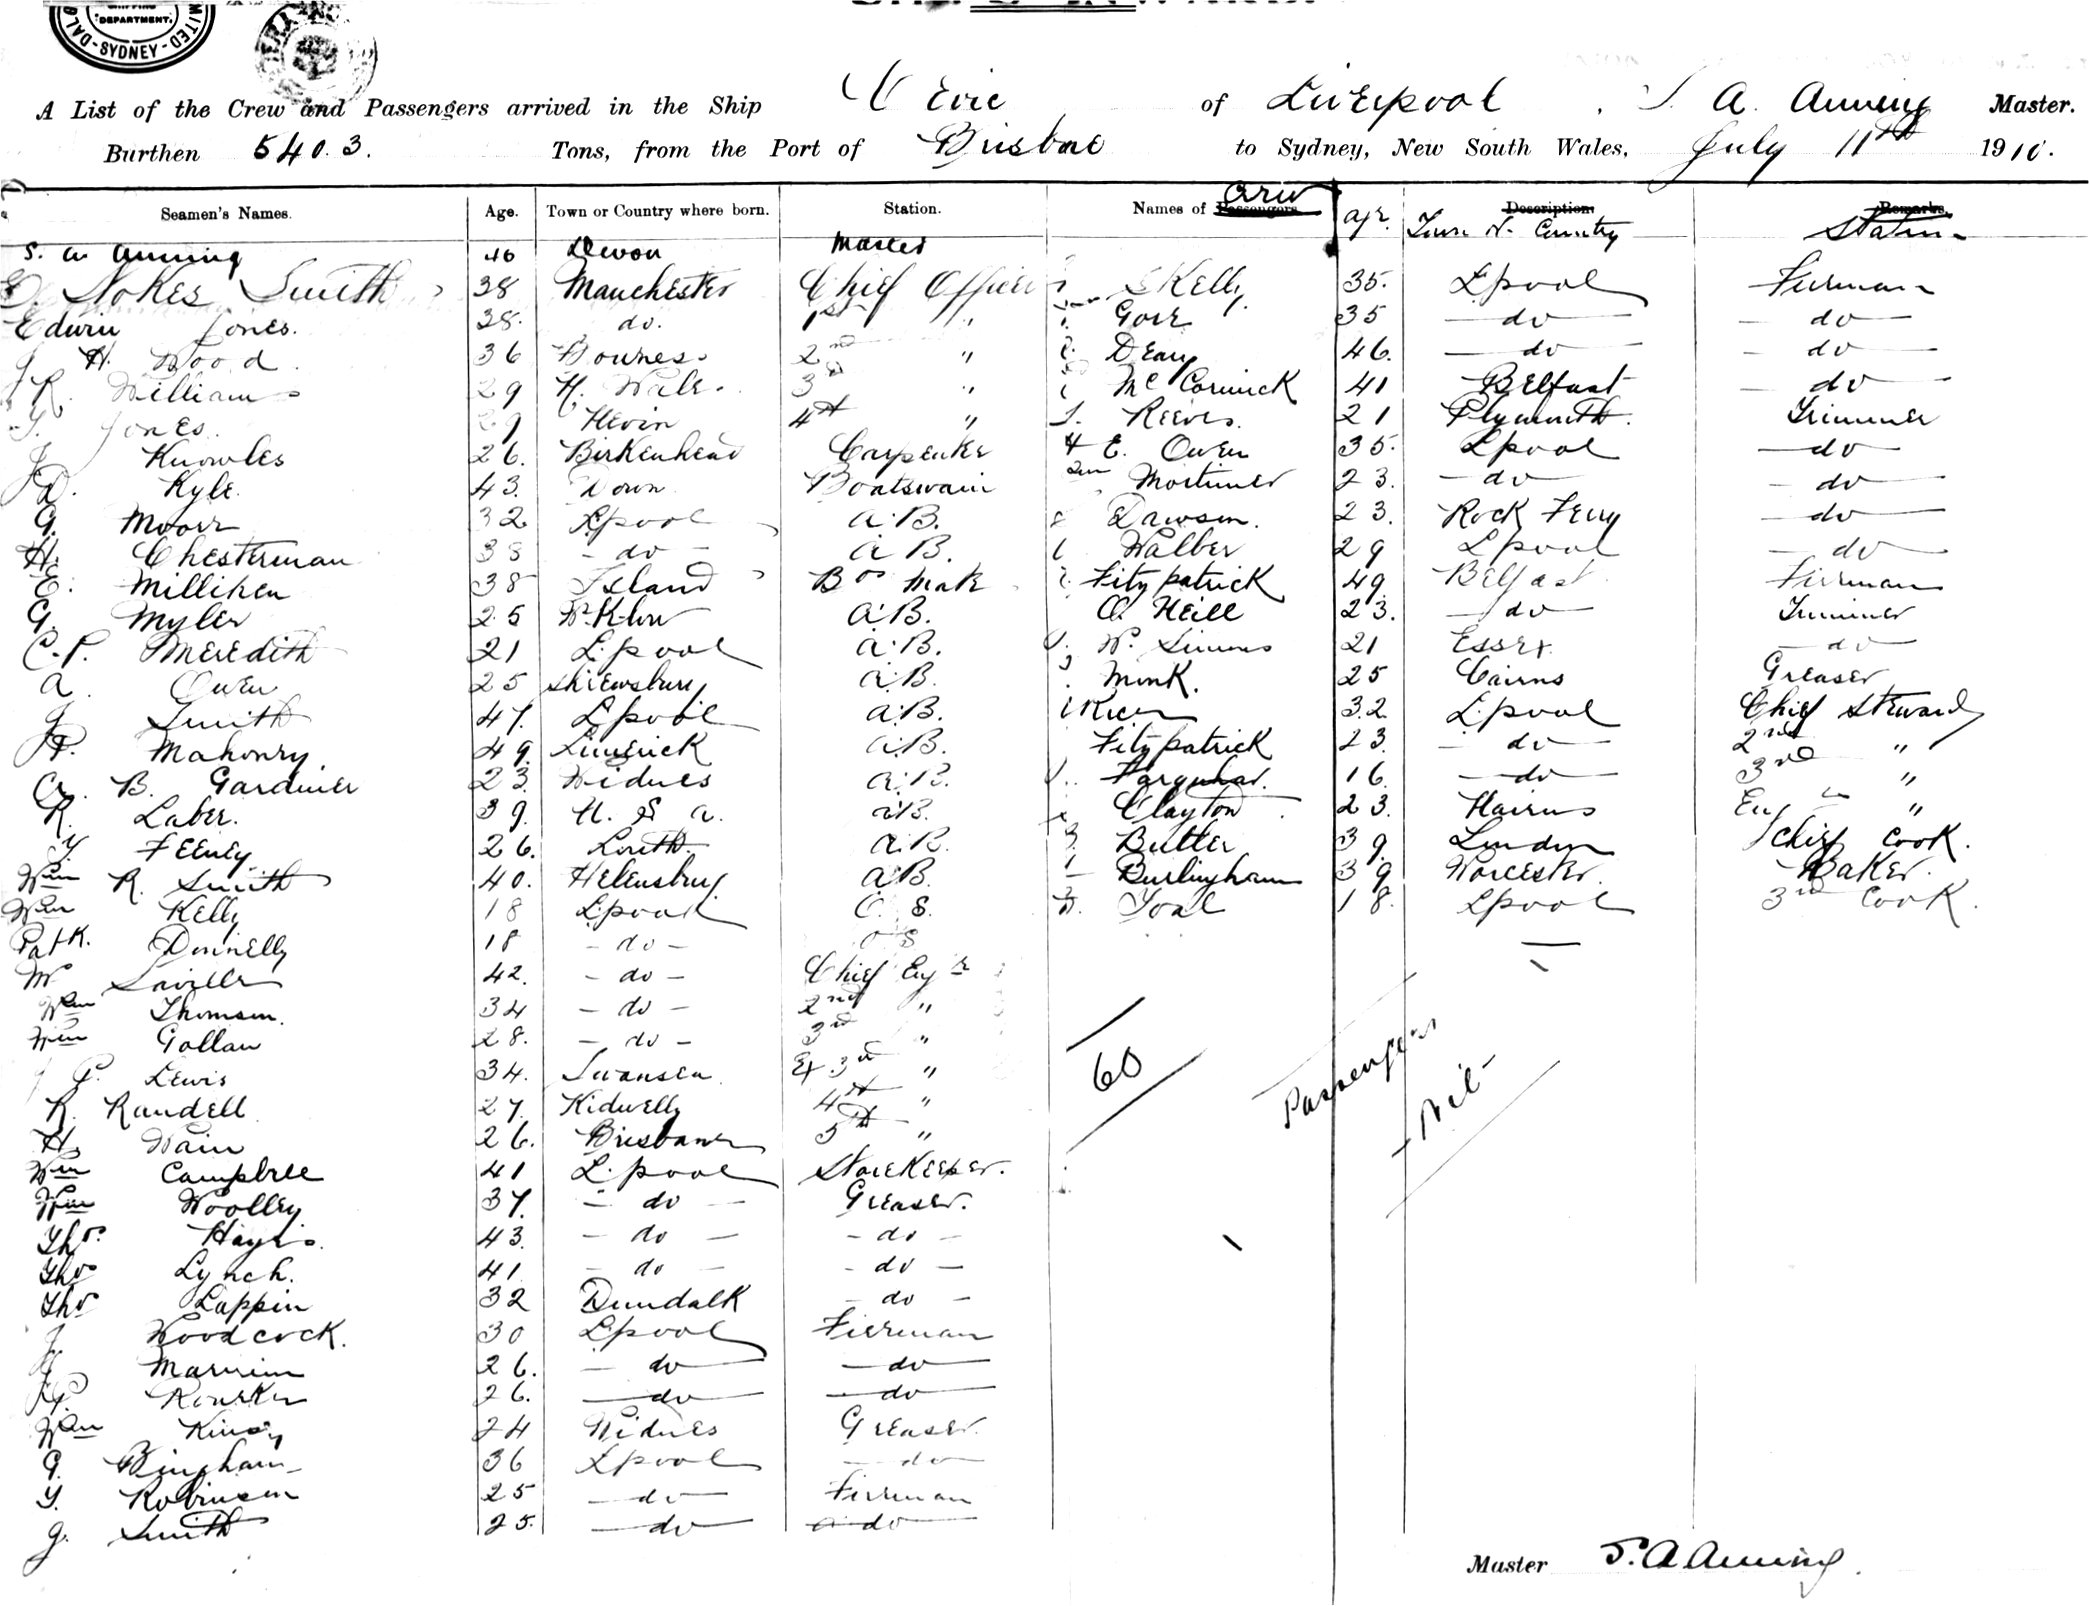 DEPARTMENT.
SYDNEY
A List of the Crew and Passengers arrived in the Ship Cevic of Liverpool, S. A. Anning Master.
Burthen 540.3. Tons, from the Port of Brisbane to Sydney, New South Wales, July 11th 1910.
Seamen's Names. Age. Town or Country where born. Station. Names of Passengers Crew Age Description Town or Country Remarks Station
S. A. Anning 46 Devon Master
E. Stokes Smith 38 Manchester Chief Officer Skelly 35. L'pool Fireman
Edwin Jones. 38. do. 1st " Gore 35 do do
J. H. Wood 36 Bowness 2nd " Dean 46. do do
R. Williams 29 N. Wales 3rd " McCormick 41 Belfast do
T. Jones. 29 Nevin 4th " J. Reeves. 21 Plymouth. Trimmer
J Knowles 26. Birkenhead Carpenter H E. Owen 35. L'pool do
D. Kyle. 43. Down Boatswain Wm Mortimer 23. do do
G. Moore 32 L'pool A.B. Dawson. 23. Rock Ferry do
H. Chesterman 38 do A.B. Walber 29 L'pool do
E. Milliken 38 Island Bos Mate Fitzpatrick 49. Belfast Fireman
G. Myler 25 A.B. O. Neill 23. do Trimmer
C. P. Meredith 21 L'pool A.B. W. Simms 21 Essex do
A. Owen 25 Shrewsbury A.B. Monk. 25 Cairns Greaser
J Smith 47. L'pool A.B. 32 L'pool Chief Steward
P. Mahoney. 49. Limerick A.B. Fitzpatrick 23. do 2nd "
B. Gardiner 23. Widnes A.B. Farquhar. 16. do 3rd "
R. Laber. 39. U. S. A. A.B. Clayton 23. "
Feeney 26. Louth A.B. Butler 39. London Chief Cook.
Wm R. Smith 40. A.B. Burlingham 39 Worcester Baker.
Wm Kelly 18 L'pool O. S. Toal 18. L'pool 3rd Cook.
Patk. Donnelly 18 do O S
W Saville 42. do Chief Engr
Wm Thomson. 34 do 2nd "
Wm Gollan 28. do 3rd "
Lewis 34. Swansea Ex 3rd "
R. Randell 27. Kidwelly 4th "
H. Wain 26. Brisbane 5th "
Wm Campbell 41 L'pool Storekeeper.
Wm Woolley 37. do Greaser.
Thos. Hayes. 43. do do
Thos Lynch. 41. do do
Thos Lappin 32 Dundalk do
J. Woodcock. 30 L'pool Fireman
26. do do
Rourke 26. do do
Wm 24 Widnes Greaser.
G. Bingham 36 L'pool do
T. Robinson 25 do Fireman
J. Smith 25. do do
60
Passengers
Nil
Master S. A. Anning.